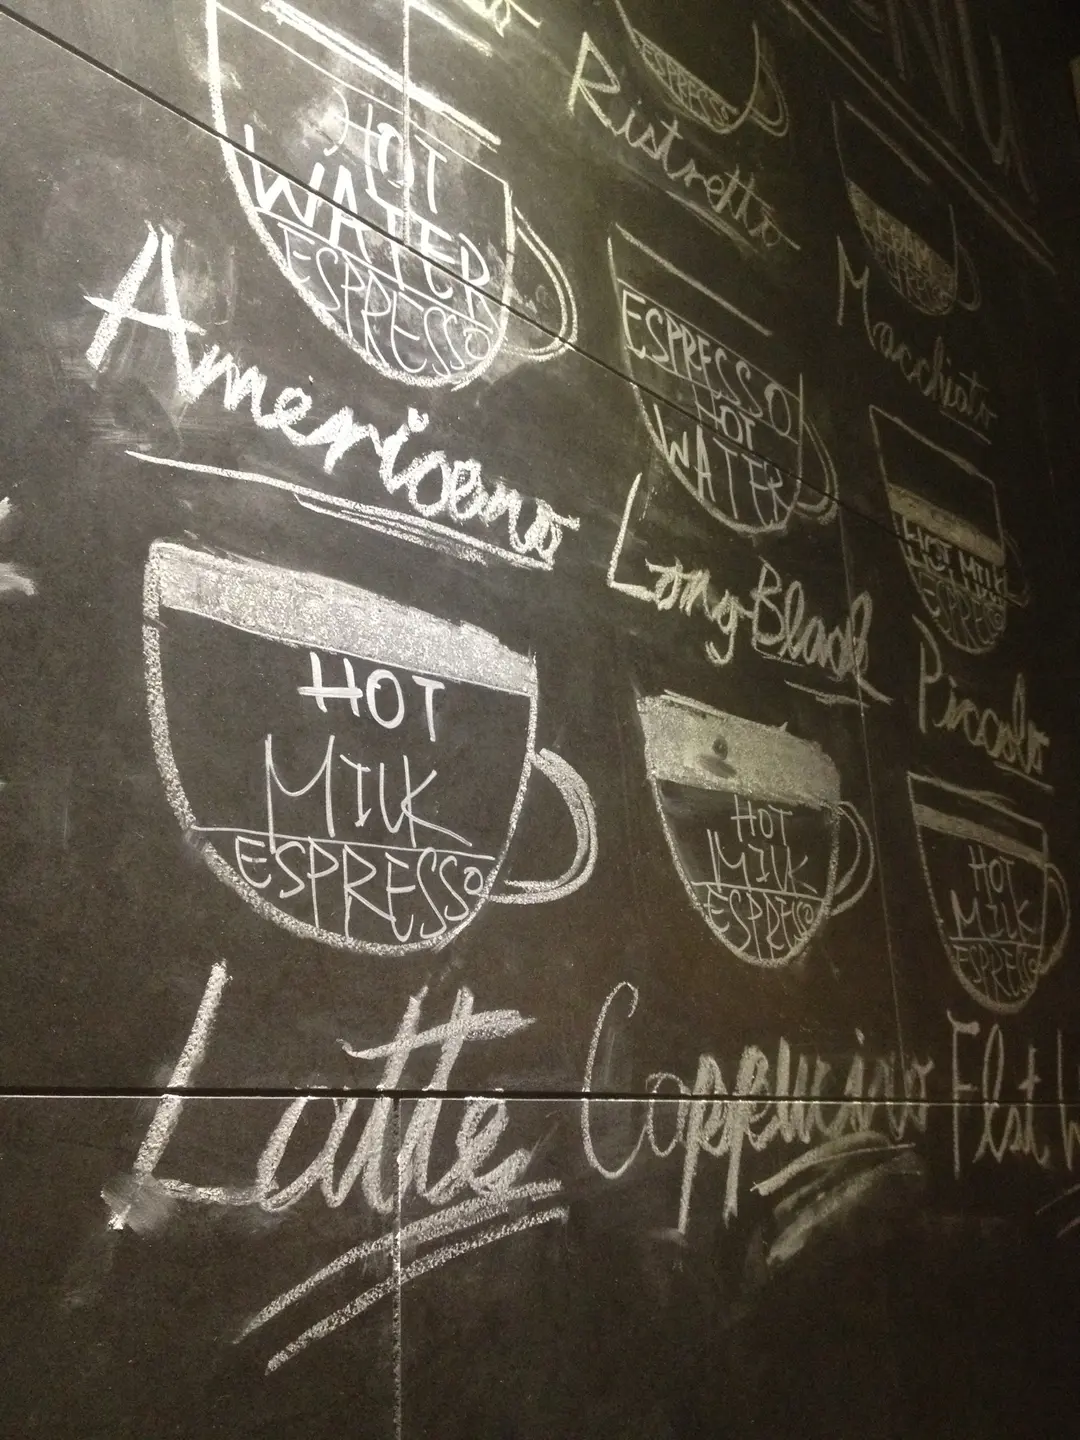 ESPRESSO
Ristretto
HOT
WATER
ESPRESSO
Americano
ESPRESSO
HOT
WATER
Long Black
Macchiato
HOT MILK
ESPRESSO
Piccolo
HOT
MILK
ESPRESSO
Latte
HOT
MILK
ESPRESSO
Cappucino
HOT
MILK
ESPRESSO
Flat